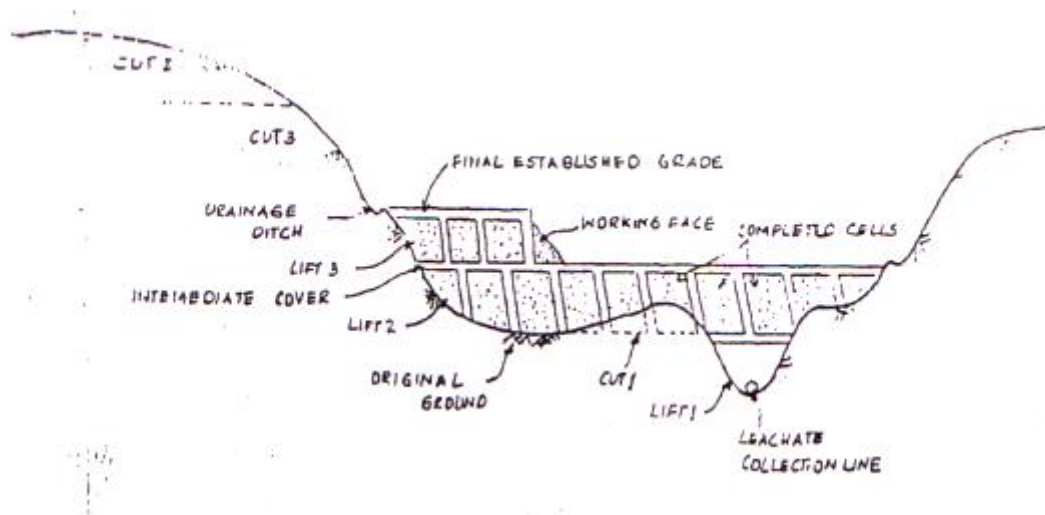 CUT 2
CUT 3
FINAL ESTABLISHED GRADE
DRAINAGE
DITCH
WORKING FACE
COMPLETED CELLS
LIFT 3
INTEMEDIATE COVER
LIFT 2
ORIGINAL
GROUND
CUT 1
LIFT 1
LEACHATE
COLLECTION LINE